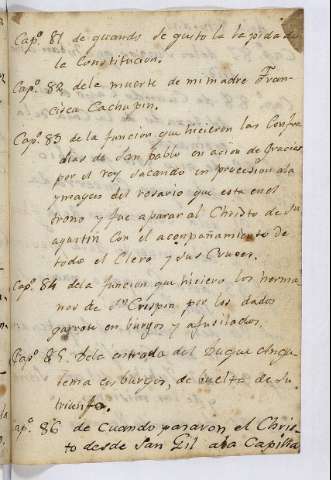 Capº. 81 de quando se quito la lapida de
la Constitucion.
Capº. 82 dela muerte de mi madre Fran-
cisca Cachupin.
Capº. 83 de la funcion que hicieron las Confra
dias de San pablo en acion de Gracias
por el rey sacando en procesion ala
ymagen del rosario que esta en el
trono y fue aparar al Christo de Sn
agustin con el aconpañamiento de
todo el Clero y sus Cruces.
Capº. 84 dela funcion que hiciero los herma
nos de Sn Crispin por los dados
garrote en burgos y afusilados.
Capº. 85. Dela entrada del Duque Angu
lema en burgos, de buelta de su
triunfo.
Capº. 86 de Cuando pasaron el Chris-
to desde San Gil ala Capilla